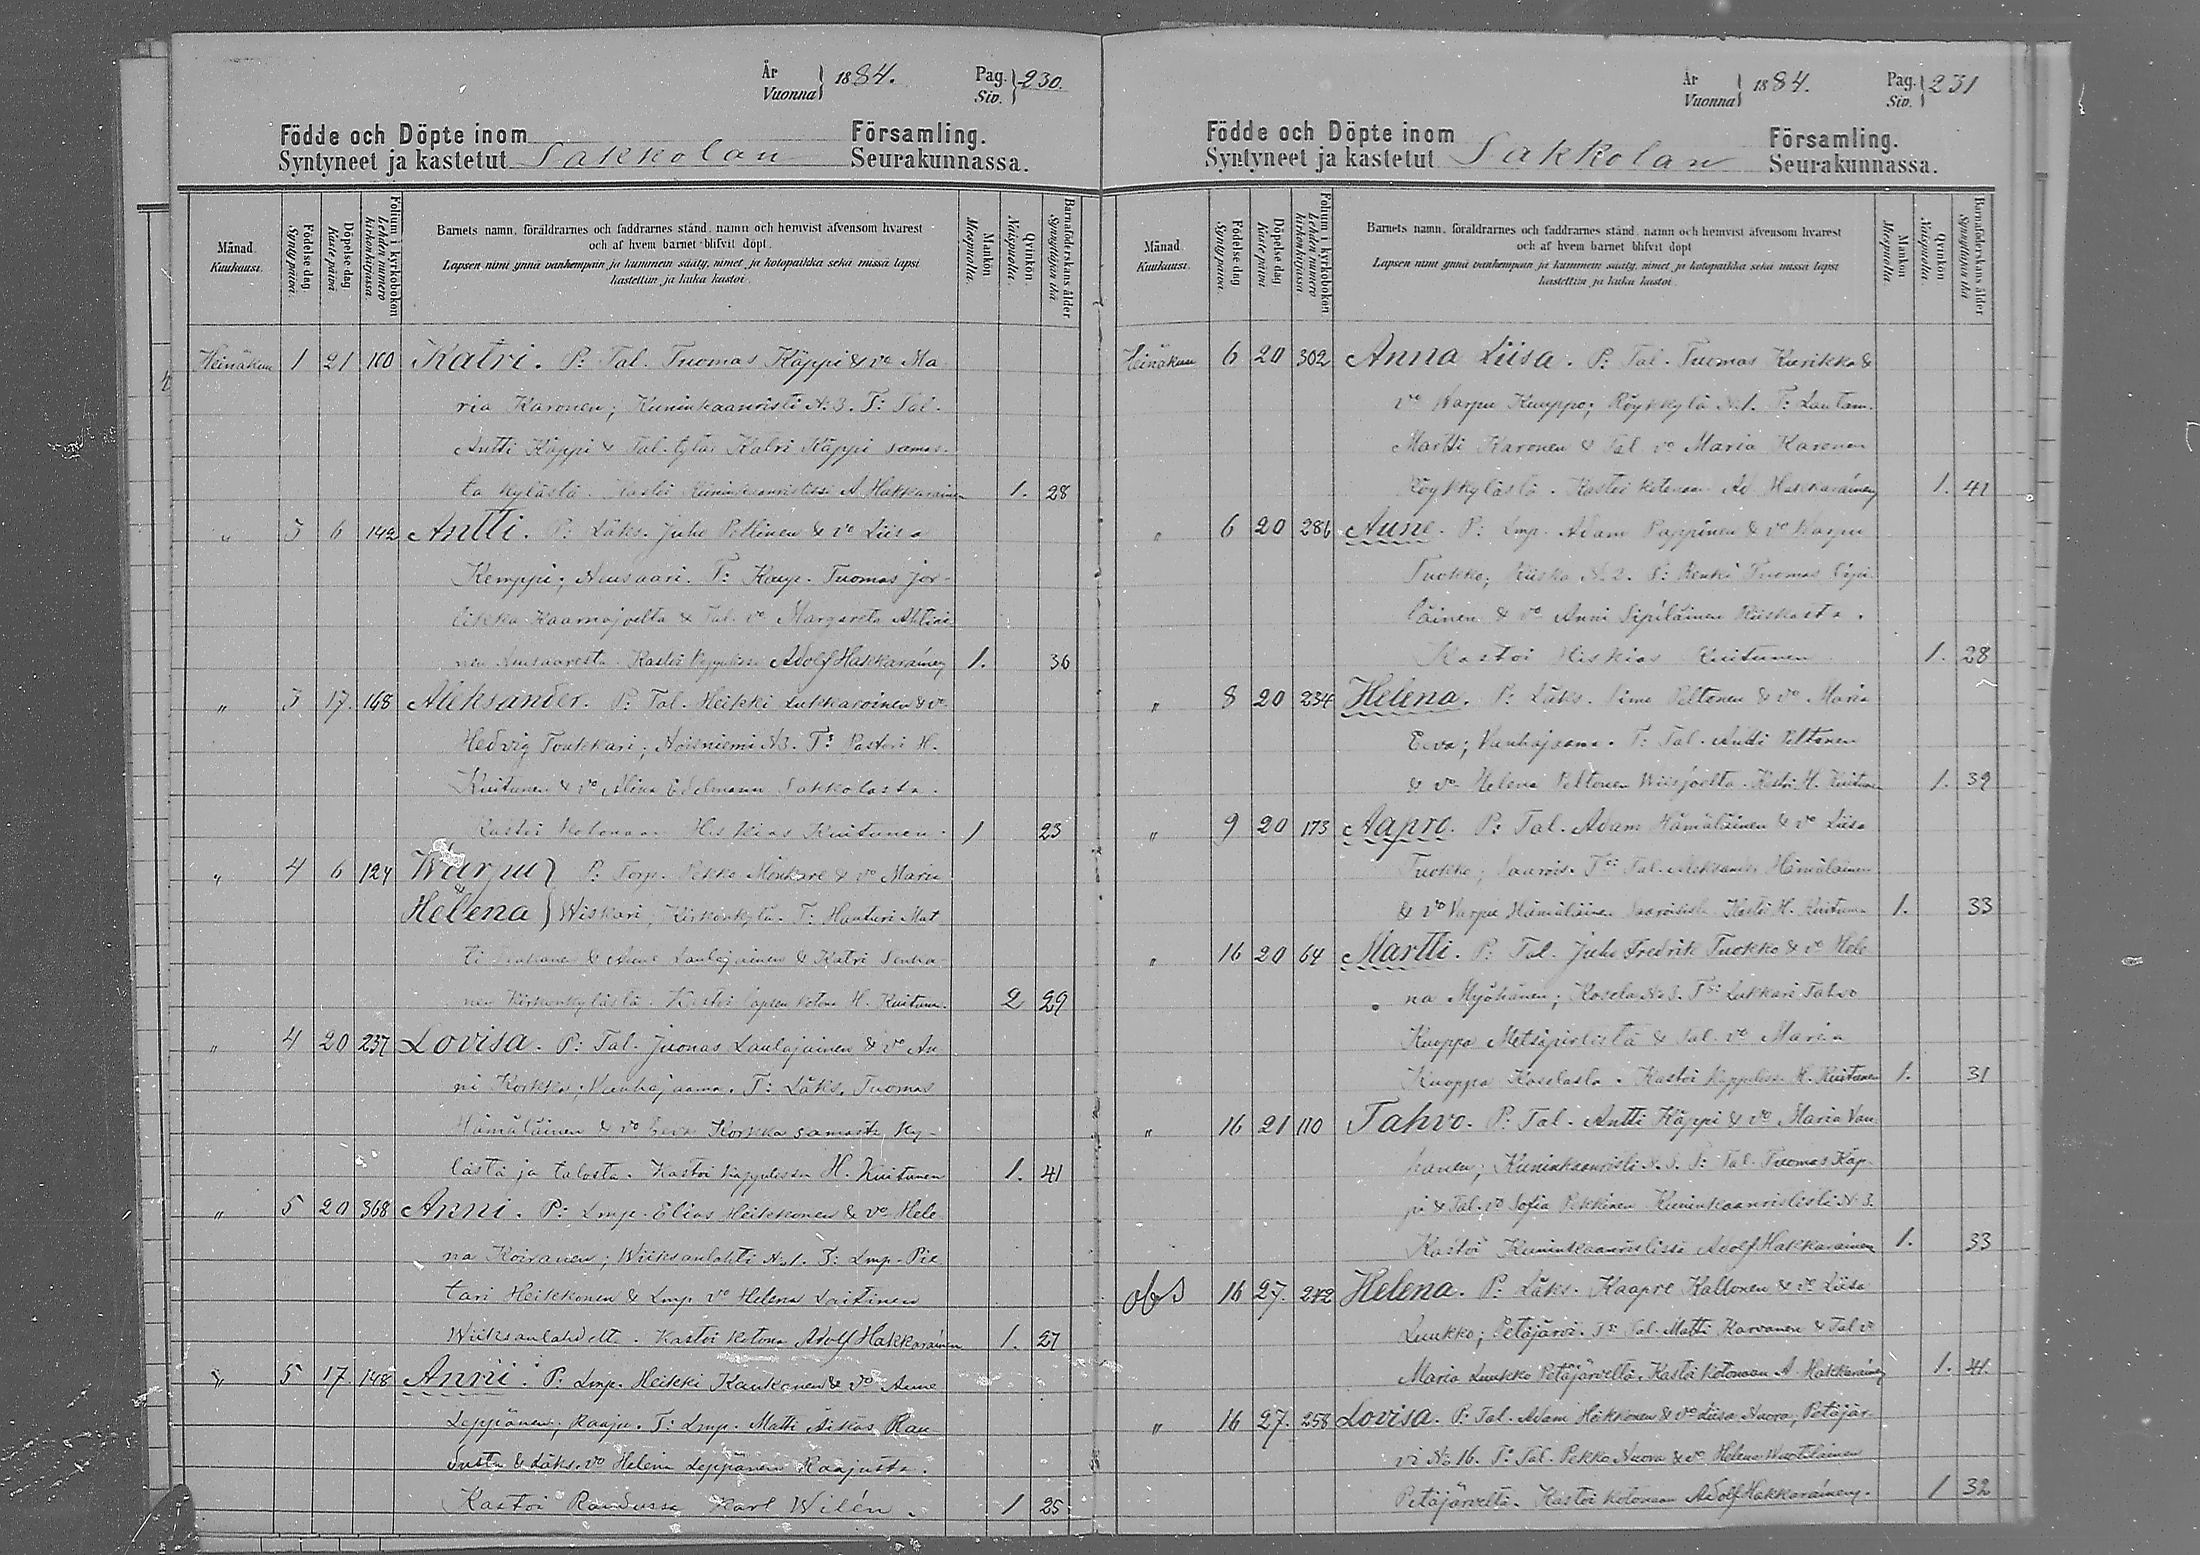 År
Vuonna } 1884. Pag.
Siv. } 230.
Födde och Döpte inom Församling.
Syntyneet ja kastetut Sakkolan Seurakunnassa.
Månad. Kuukausi.
Födelse dag Syntypäivä.
Döpelse dag Kastepäivä
Folium i kyrkoboken Lehden numero kirkonkirjassa
Barnets namn, föräldrarnes och faddrarnes stånd, namn och hemvist äfvensom hvarest
och af hvem barnet blifvit döpt.
Lapsen nimi ynnä vanhempain ja kummein sääty, nimet ja kotopaikka sekä missä lapsi
kastettiin ja kuka kastoi.
Mankön Miespuolia.
Qvinkön. Naispuolia.
Barnaföderskans ålder Synnyttäjän ikä
Heinäkuu 1 21 100 Katri. P: Tal. Tuomas Käppi & vo Ma
ria Karonen; Kuninkaanristi N:3. T: Tal.
Antti Käppi & Tal. tytär Katri Käppi samas-
ta kylästä. Kastoi Kuninkaanristissä A. Hakkarainen 1. 28
" 3 6 142 Antti. P: Läks. Juho Pollinen & vo Liisa
Kemppi; Ausaari. T: Kaup. Tuomas Jor-
likka Haamajoelta & Tal. vo Margareta Ahtiai
nen Ausaaresta. Kastoi Kappelissa Adolf Hakkarainen 1. 36
" 3 17. 168 Aleksander. P: Tal. Heikki Lukkaroinen & vo
Hedvig Toukkari; Noisniemi N3. T: Pastori H.
Kuitunen & vo Alina Edelmann Sakkolasta.
Kastoi kotonaan Hiskias Kuitunen. 1 23
" 4 6 124 Warpu } P: Torp. Pekka Mönkäre & vo Maria
&
Helena } Wiskari; Kirkonkylä. T: Hanturi Mat
ti & Anne Laulajainen & Katri
nen Kirkonkylästä. Kastoi lapsen kotona H. Kuitunen. 2 29
" 4 20 237 Lovisa. P: Tal. Juonas Laulajainen & vo An
ni Korkka; Vanhajaama. T: Läks. Tuomas
Hämäläinen & vo Eeva Korkka samasta ky-
lästä ja talosta. Kastoi Kappelissa H. Kuitunen 1. 41
" 5 20 368 Anni. P: Lmp. Elias Heikkonen & vo Hele
na Koiranen; Wiiksanlahti N:1. T: Lmp. Pie
tari Heikkonen & Lmp. vo Helena Loitinen
Wiiksanlahdelta. Kastoi kotona Adolf Hakkarainen 1. 27
" 5 17. 148 Anni. P: Lmp. Heikki Kaukonen & vo Anne
Leppänen; Raaju. T: Lmp. Matti Äikäs Rau
dusta & Läks. vo Helena Leppänen Raajusta.
Kastoi Raudussa Karl Wilén. 1 25
År
Vuonna } 1884. Pag.
Siv. } 231
Födde och Döpte inom Församling.
Syntyneet ja kastetut Sakkolan Seurakunnassa.
Månad. Kuukausi.
Födelse dag Syntypäivä.
Döpelse dag Kastepäivä
Folium i kyrkoboken Lehden numero kirkonkirjassa
Barnets namn, föräldrarnes och faddrarnes stånd, namn och hemvist äfvensom hvarest
och af hvem barnet blifvit döpt
Lapsen nimi ynnä vanhempain ja kummein sääty, nimet ja kotopaikka sekä missä lapsi
kastettiin ja kuka kastoi.
Mankön Miespuolia
Qvinkön Naispuolia.
Barnaföderskans ålder Synnyttäjän ikä
Heinäkuu 6 20 302 Anna Liisa. P: Tal. Tuomas Kurikka &
vo Warpu Kuuppo; Röykkylä N:1. T: Lautam.
Martti Karonen & Tal. vo Maria Karonen
Röykkylästä. Kastoi kotonaan Ad. Hakkarainen 1. 41
" 6 20 286 Aune. P: Lmp. Adam Pappinen & vo Warpu
Tuokko; Kiiska N:2. T: Renki Tuomas Sipi
läinen & vo Anni Sipiläinen Kiiskasta.
Kastoi Hiskias Kuitunen 1. 28
" 8 20 234 Helena. P: Läks. Simo Peltonen & vo Maria
Eeva; Vanhajaama. T: Tal. Antti Peltonen
& vo Helena Peltonen Wiisjoelta. Kastoi H. Kuitunen 1. 39
" 9 20 173 Aapro. P: Tal. Adam Hämäläinen & vo Liisa
Tuokko; T: Tal. Aleksander Hämäläinen
& vo Varpu Hämäläinen Kastoi H. Kuitunen 1. 33
" 16 20 64 Martti. P: Tal. Juho Fredrik Tuokko & vo Hele
na Myöhänen; Kosela N:3. T: Lukkari Tahvo
Kuoppa Metsäpirtistä & Tal. vo Maria
Kuoppa Koselasta. Kastoi Kappelissa H. Kuitunen 1. 31
" 16 21 110 Tahvo. P: Tal. Antti Käppi & vo Maria Van
hanen; Kuninkaanristi N.3. T: Tal. Tuomas Käp-
pi & Tal. vo Sofia Pekkinen Kuninkaanrististä N:3.
Kastoi Kuninkaanristissä Adolf Hakkarainen 1. 33
obs 16 27. 272 Helena. P: Läks. Kaapre Kallonen & vo Liisa
Luukko; Petäjärvi. T: Tal. Matti Karvanen & Tal v
Maria Luukko Petäjärveltä. Kastoi kotonaan A. Hakkarainen 1. 41.
" 16 27. 258 Lovisa. P: Tal. Adam Häkkonen & vo Liisa Nuora; Petäjär-
vi No 16. T: Tal. Pekko Nuora & vo Helena Wuotilainen
Petäjärveltä. Kastoi kotonaan Adolf Hakkarainen. 1 32